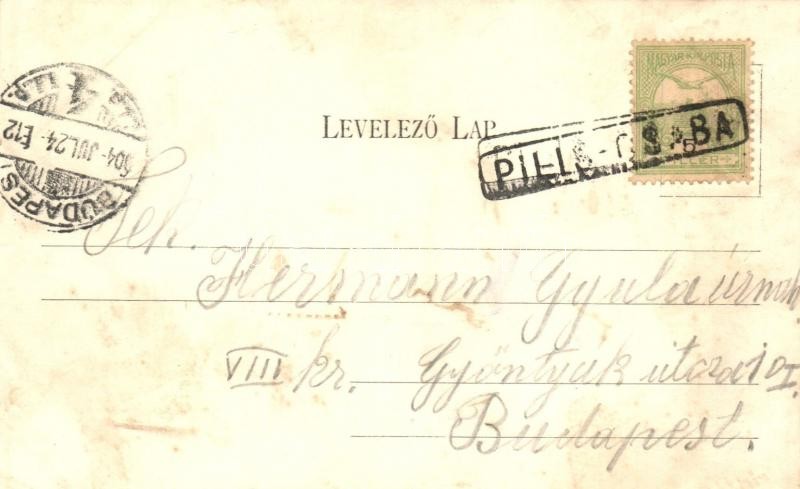 MAGYAR KIR. POSTA
LEVELEZŐ LAP
PILIS-CSABA
5
904 JUL 24 E12
BUDAPEST
Tek.
Hermann Gyula úrnak
VIII kr. utcza 10 I.
Budapest.